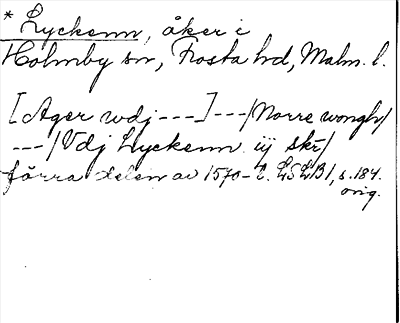 * Lyckenn, åker i
Holmby sn, Frosta hd, Malm. l.
[Ager vdj ---] ---/Norre wongh/
---/Vdj Lyckenn iij skr/
förra delen av 1570-t. LSLB1, s. 184.
orig.